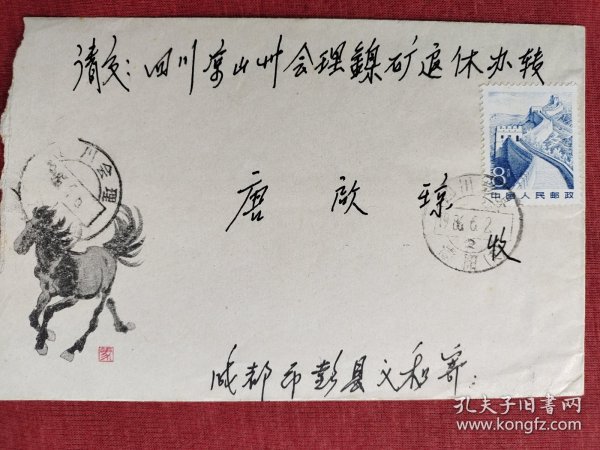 请交：四川凉山州会理镍矿退休办转
8分
中国人民邮政
唐启琼
收
86.6.2
成都市彭县文和寄：
孔夫子旧书网
www.kongfz.com